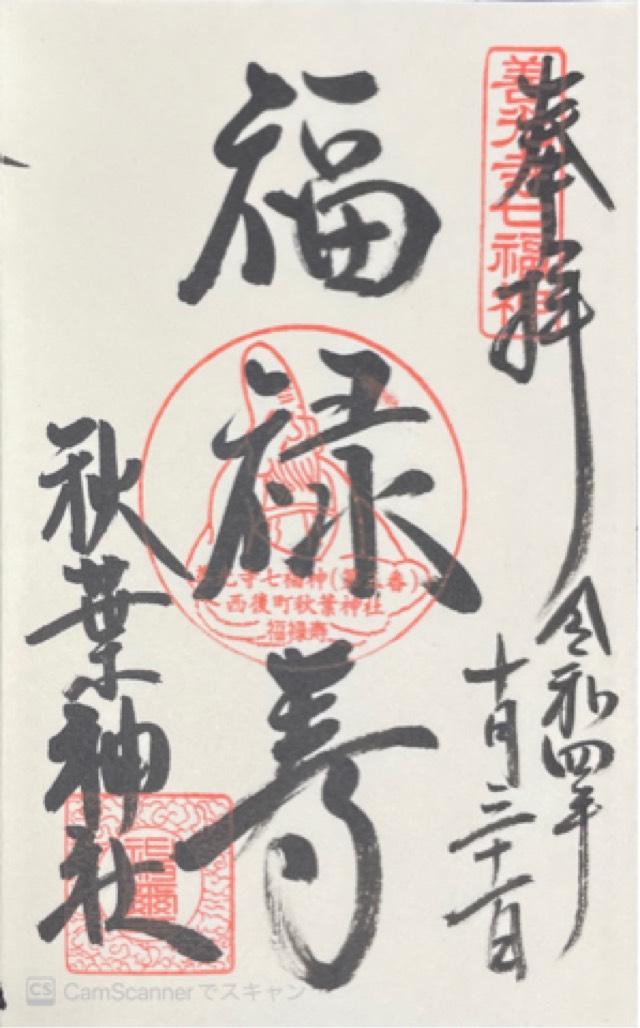 善光寺七福神
奉拝
令和四年
十月三十一日
福禄寿
善光寺七福神(第三番)
西後町秋葉神社
福禄寿
秋葉神社
CS CamScannerでスキャン